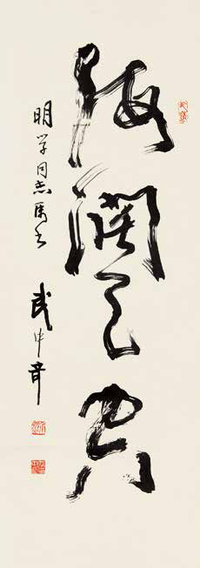 海闊天空
明学同志属
武中奇